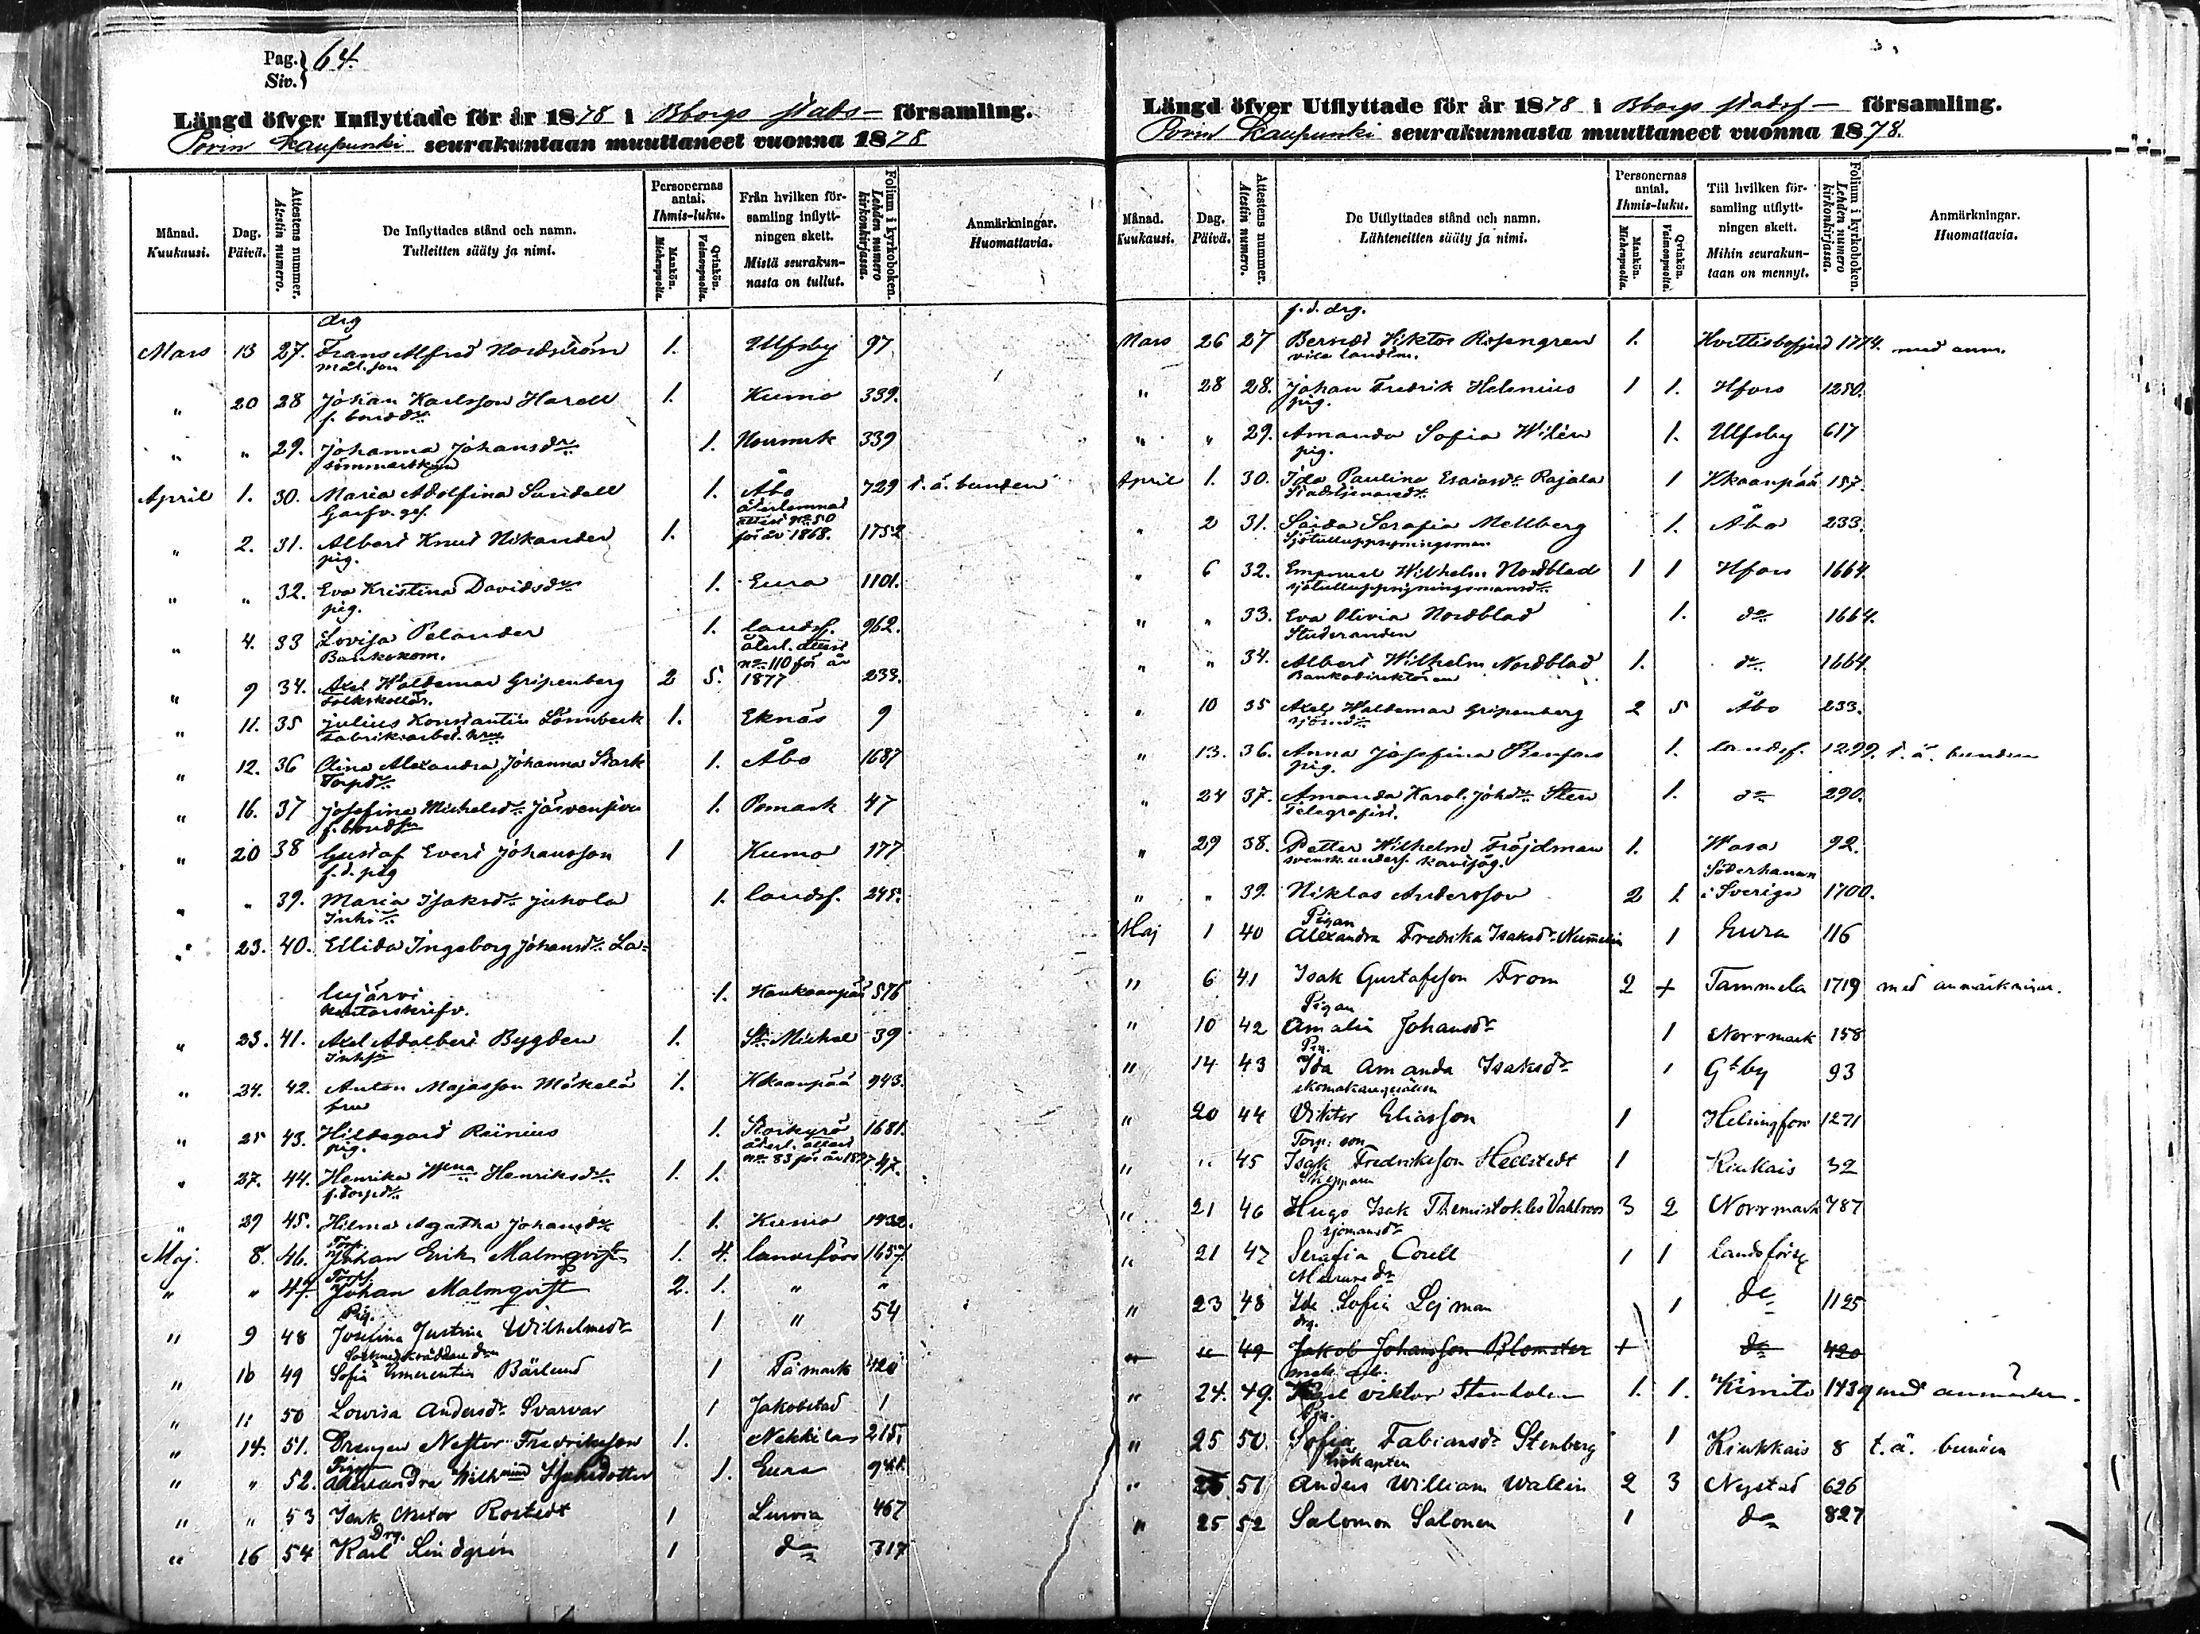 Pag. } 64.
Siv.
Längd öfver Inflyttade för år 1878 i Bborgs stads- församling.
Porin Kaupunki seurakuntaan muuttaneet vuonna 1878
Månad. Kuukausi.
Dag. Päivä.
Attestens nummer. Atestin numero.
De Inflyttades stånd och namn. Tulleitten sääty ja nimi.
Personernas antal. Ihmis-luku.
Mankön. Miehenpuolia.
Qvinkön. Vaimonpuolia.
Från hvilken församling inflyttningen skett. Mistä seurakunnasta on tullut.
Folium i kyrkoboken. Lehden numero kirkonkirjassa.
Anmärkningar. Huomattavia.
drg
Mars 13 27. Frans Alfred Nordström 1. Ulfsby 97
mål. son
" 20 28 Johan Karlsson Harell 1. Kumo 339.
f. bondedr
" " 29. Johanna Johansdr 1. Norrmrk 339
sömmerskan
April 1. 30. Maria Adolfina Sundell 1. Åbo 729 t. ä. bunden
Garfv. ges. återlemnad attest No 50
" 2. 31. Albert Knut Nikander 1. för år 1868. 1752
pig.
" " 32. Eva Kristina Davidsdr 1. Eura 1101.
pig.
" 4. 33 Lovisa Pelander 1. landsf. 962.
Banksk.om. återl. attest no 110 för år
" 9 34. Axel Waldemar Gripenberg 2 5. 1877 233.
Folkskollär.
" 11. 35 Julius Konstantin Lönnbeck 1. Eknäs 9
Fabriksarbet. hru
" 12. 36 Olina Alexandra Johanna Stark 1. Åbo 1687
Torpdr
" 16. 37 Josefina Michelsdr Järvensivu 1. Pomark 47
f. bondson
" 20 38 Gustaf Evert Johansson 1 Kumo 177
f. d. pig
" " 39. Maria Isaksdr Juhola 1. landsf. 245.
Inhdr
" 23. 40. Ellida Ingeborg Johansdr La-
lujärvi 1. Honkaanpää 576
Kontorskrifv.
" 23. 41. Axel Adalbert Bygden 1. St. Michel 39
Inhson
" 24. 42. Anton Majasson Mäkelä 1. Hkaanpää 943.
fru
" 25 43. Hildegard Reinius 1. Storkyrö 1681.
pig. återl. attest
" 27. 44. Henrika Wma Henriksdr 1. 1. no 83 för år 1877. 47.
f. torpdr
" 29 45. Hilma Agatha Johansdr 1. Kumo 1432.
Torp.
Maj. 8. 46. Johan Erik Malmqvist 1. 4. landsförs 1657.
Torp.
" " 47. Johan Malmqvist 2. 1. " "
Pig.
" 9 48 Josefina Justina Wilhelmsdr 1 " 54
" 10 49 Sofia Emerentia Bärlund 1 Påmark 420
" 11 50 Lowisa Andersdr Svarvar 1 Jakobstad 1
" 14. 51. Drengen Nestor Fredriksson 1. Nakkilas 215.
" " 52. Alexandra Wilhmina Isaksdotter 1. Eura 941.
" " 53 Isak Nestor Rostedt 1 Luvia 467
Drg.
" 16 54 Karl Lindgrén 1 do 317
Längd öfver Utflyttade för år 1878 i Bborgs stadsf- församling.
Porin Kaupunki seurakunnasta muuttaneet vuonna 1878.
Månad. Kuukausi.
Dag. Päivä.
Attestens nummer. Atestin numero.
De Utflyttades stånd och namn. Lähteneitten sääty ja nimi.
Personernas antal. Ihmis-luku.
Mankön. Miehenpuolia.
Qvinkön. Vaimonpuolia.
Till hvilken församling utflyttningen skett. Mihin seurakuntaan on mennyt.
Folium i kyrkoboken. Lehden numero kirkonkirjassa.
Anmärkningar. Huomattavia.
f. d. drg.
Mars 26 27 Berndt Viktor Rosengren 1. Hvittisbofjerd 1774. med anm.
vice landtm.
" 28 28. Johan Fredrik Helenius 1 1. Hfors 1250.
pig.
" " 29. Amanda Sofia Wilén 1. Ulfsby 617
pig.
April 1. 30. Ida Paulina Esaiasdr Rajala 1 Hkaanpää 157.
Stadstjenaredr
" 2 31. Saida Serafia Mellberg 1. Åbo 233.
Sjötulluppsyningsman
" 6 32. Emanuel Wilhelm Nordblad 1 1 Hfors 1664.
sjötulluppsyningsmansdr
" " 33. Eva Olivia Nordblad 1. do 1664.
Studeranden
" " 34. Albert Wilhelm Nordblad 1. do 1664.
Bankodirektören
" 10 35 Axel Waldemar Gripenberg 2 5 Åbo 233.
sjömdr
" 13. 36. Anna Josefina Renfors 1. landsf. 1299. t. ä. bunden
pig.
" 24 37. Amanda Karol. Johdr Sten 1. do 290.
Telegrafist.
" 29 38. Petter Wilhelm Fröjdman 1. Wasa 92.
svensk. unders. Söderhamn
" " 39. Niklas Andersson 2 1. i Sverige 1700.
Pigan
Maj 1 40 Alexandra Fredrika Isaksdr Nummelin 1 Eura 116
" 6 41 Isak Gustafsson From 2 + Tammela 1719 med anmärkningar.
Pigan
" 10 42 Amalia Johansdr 1 Norrmark 158
Pin.
" 14 43 Ida Amanda Isaksdr 1 Gtby 93
skomakaregesällen
" 20 44 Viktor Eliasson 1 Helsingfors 1271
Torp: son
" " 45 Isak Fredriksson Hellstedt 1 Kiukais 32
Skepparen
" 21 46 Hugo Isak Themistokles Vahlroos 3 2 Norrmark 787
sjömansdr
" 21 47 Serafia Corell 1 1 Landsförs
Muraredr
" 23 48 Ida Sofia Lejman 1 do 1125
drg.
" " 49 Jakob Johansson Blomster + do 420
" 24. 49. Karl Viktor Stenholm 1. 1. Kimito 1439 med anmärkn.
Pin.
" 25 50. Sofia Fabiansdr Stenberg 1 Kiukkais 8 t. ä. bunden
Sjökapten
" 25 51 Anders William Wallin 2 3 Nystad 626
" 25 52 Salomon Salonen 1 do 827